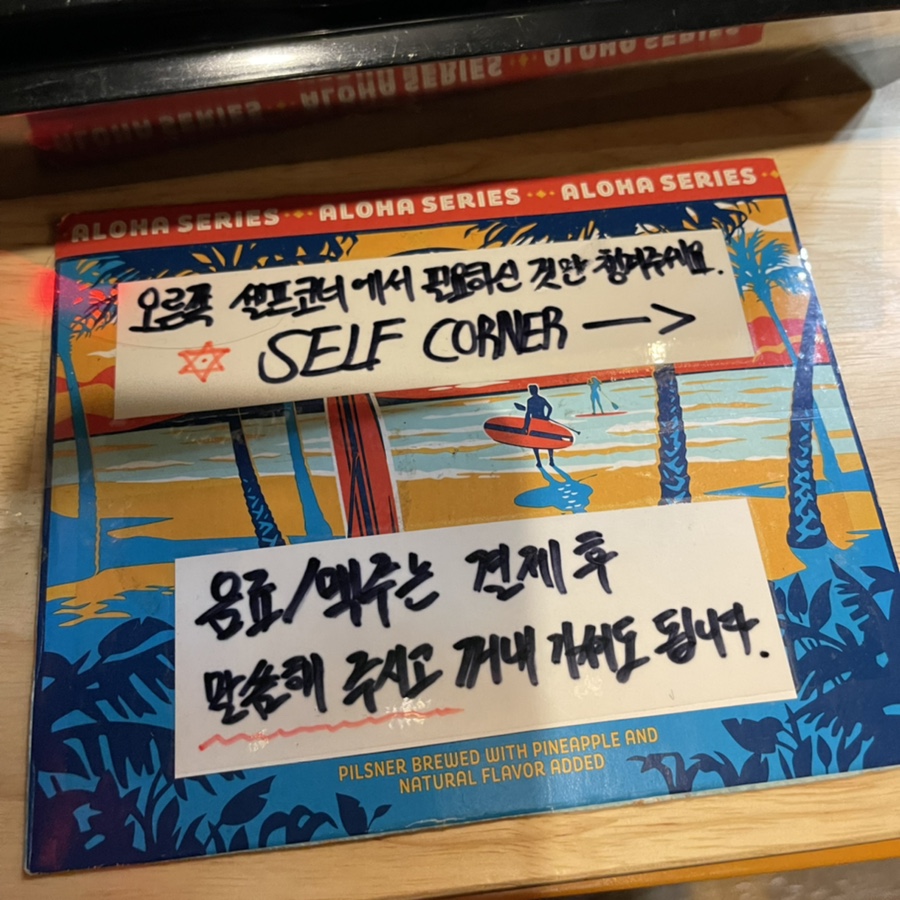 ALOHA SERIES ALOHA SERIES ALOHA SERIES
ALOHA SERIES ALOHA SERIES ALOHA SERIES
오른쪽 셀프코너에서 필요하신 것만 챙겨주세요.
SELF CORNER →
음료/맥주는 결제 후
말씀해 주시고 꺼내 가셔도 됩니다.
PILSNER BREWED WITH PINEAPPLE AND
NATURAL FLAVOR ADDED